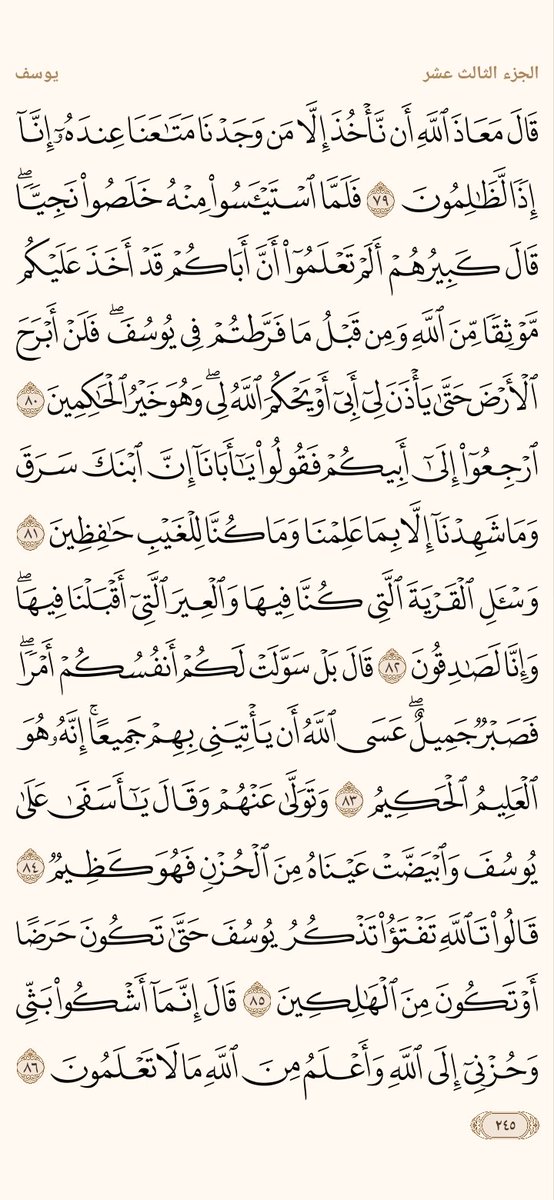 الجزء الثالث عشر
يوسف
قَالَ مَعَاذَ ٱللَّهِ أَن نَّأْخُذَ إِلَّا مَن وَجَدْنَا مَتَٰعَنَا عِندَهُۥٓ إِنَّآ
إِذًا لَّظَٰلِمُونَ ٧٩ فَلَمَّا ٱسْتَيْـَٔسُوا۟ مِنْهُ خَلَصُوا۟ نَجِيًّا ۖ
قَالَ كَبِيرُهُمْ أَلَمْ تَعْلَمُوٓا۟ أَنَّ أَبَاكُمْ قَدْ أَخَذَ عَلَيْكُم
مَّوْثِقًا مِّنَ ٱللَّهِ وَمِن قَبْلُ مَا فَرَّطتُمْ فِى يُوسُفَ ۖ فَلَنْ أَبْرَحَ
ٱلْأَرْضَ حَتَّىٰ يَأْذَنَ لِىٓ أَبِىٓ أَوْ يَحْكُمَ ٱللَّهُ لِى ۖ وَهُوَ خَيْرُ ٱلْحَٰكِمِينَ ٨٠
ٱرْجِعُوٓا۟ إِلَىٰٓ أَبِيكُمْ فَقُولُوا۟ يَٰٓأَبَانَآ إِنَّ ٱبْنَكَ سَرَقَ
وَمَا شَهِدْنَآ إِلَّا بِمَا عَلِمْنَا وَمَا كُنَّا لِلْغَيْبِ حَٰفِظِينَ ٨١
وَسْـَٔلِ ٱلْقَرْيَةَ ٱلَّتِى كُنَّا فِيهَا وَٱلْعِيرَ ٱلَّتِىٓ أَقْبَلْنَا فِيهَا ۖ
وَإِنَّا لَصَٰدِقُونَ ٨٢ قَالَ بَلْ سَوَّلَتْ لَكُمْ أَنفُسُكُمْ أَمْرًا ۖ
فَصَبْرٌ جَمِيلٌ ۖ عَسَى ٱللَّهُ أَن يَأْتِيَنِى بِهِمْ جَمِيعًا ۚ إِنَّهُۥ هُوَ
ٱلْعَلِيمُ ٱلْحَكِيمُ ٨٣ وَتَوَلَّىٰ عَنْهُمْ وَقَالَ يَٰٓأَسَفَىٰ عَلَىٰ
يُوسُفَ وَٱبْيَضَّتْ عَيْنَاهُ مِنَ ٱلْحُزْنِ فَهُوَ كَظِيمٌ ٨٤
قَالُوا۟ تَٱللَّهِ تَفْتَؤُا۟ تَذْكُرُ يُوسُفَ حَتَّىٰ تَكُونَ حَرَضًا
أَوْ تَكُونَ مِنَ ٱلْهَٰلِكِينَ ٨٥ قَالَ إِنَّمَآ أَشْكُوا۟ بَثِّى
وَحُزْنِىٓ إِلَى ٱللَّهِ وَأَعْلَمُ مِنَ ٱللَّهِ مَا لَا تَعْلَمُونَ ٨٦
٢٤٥